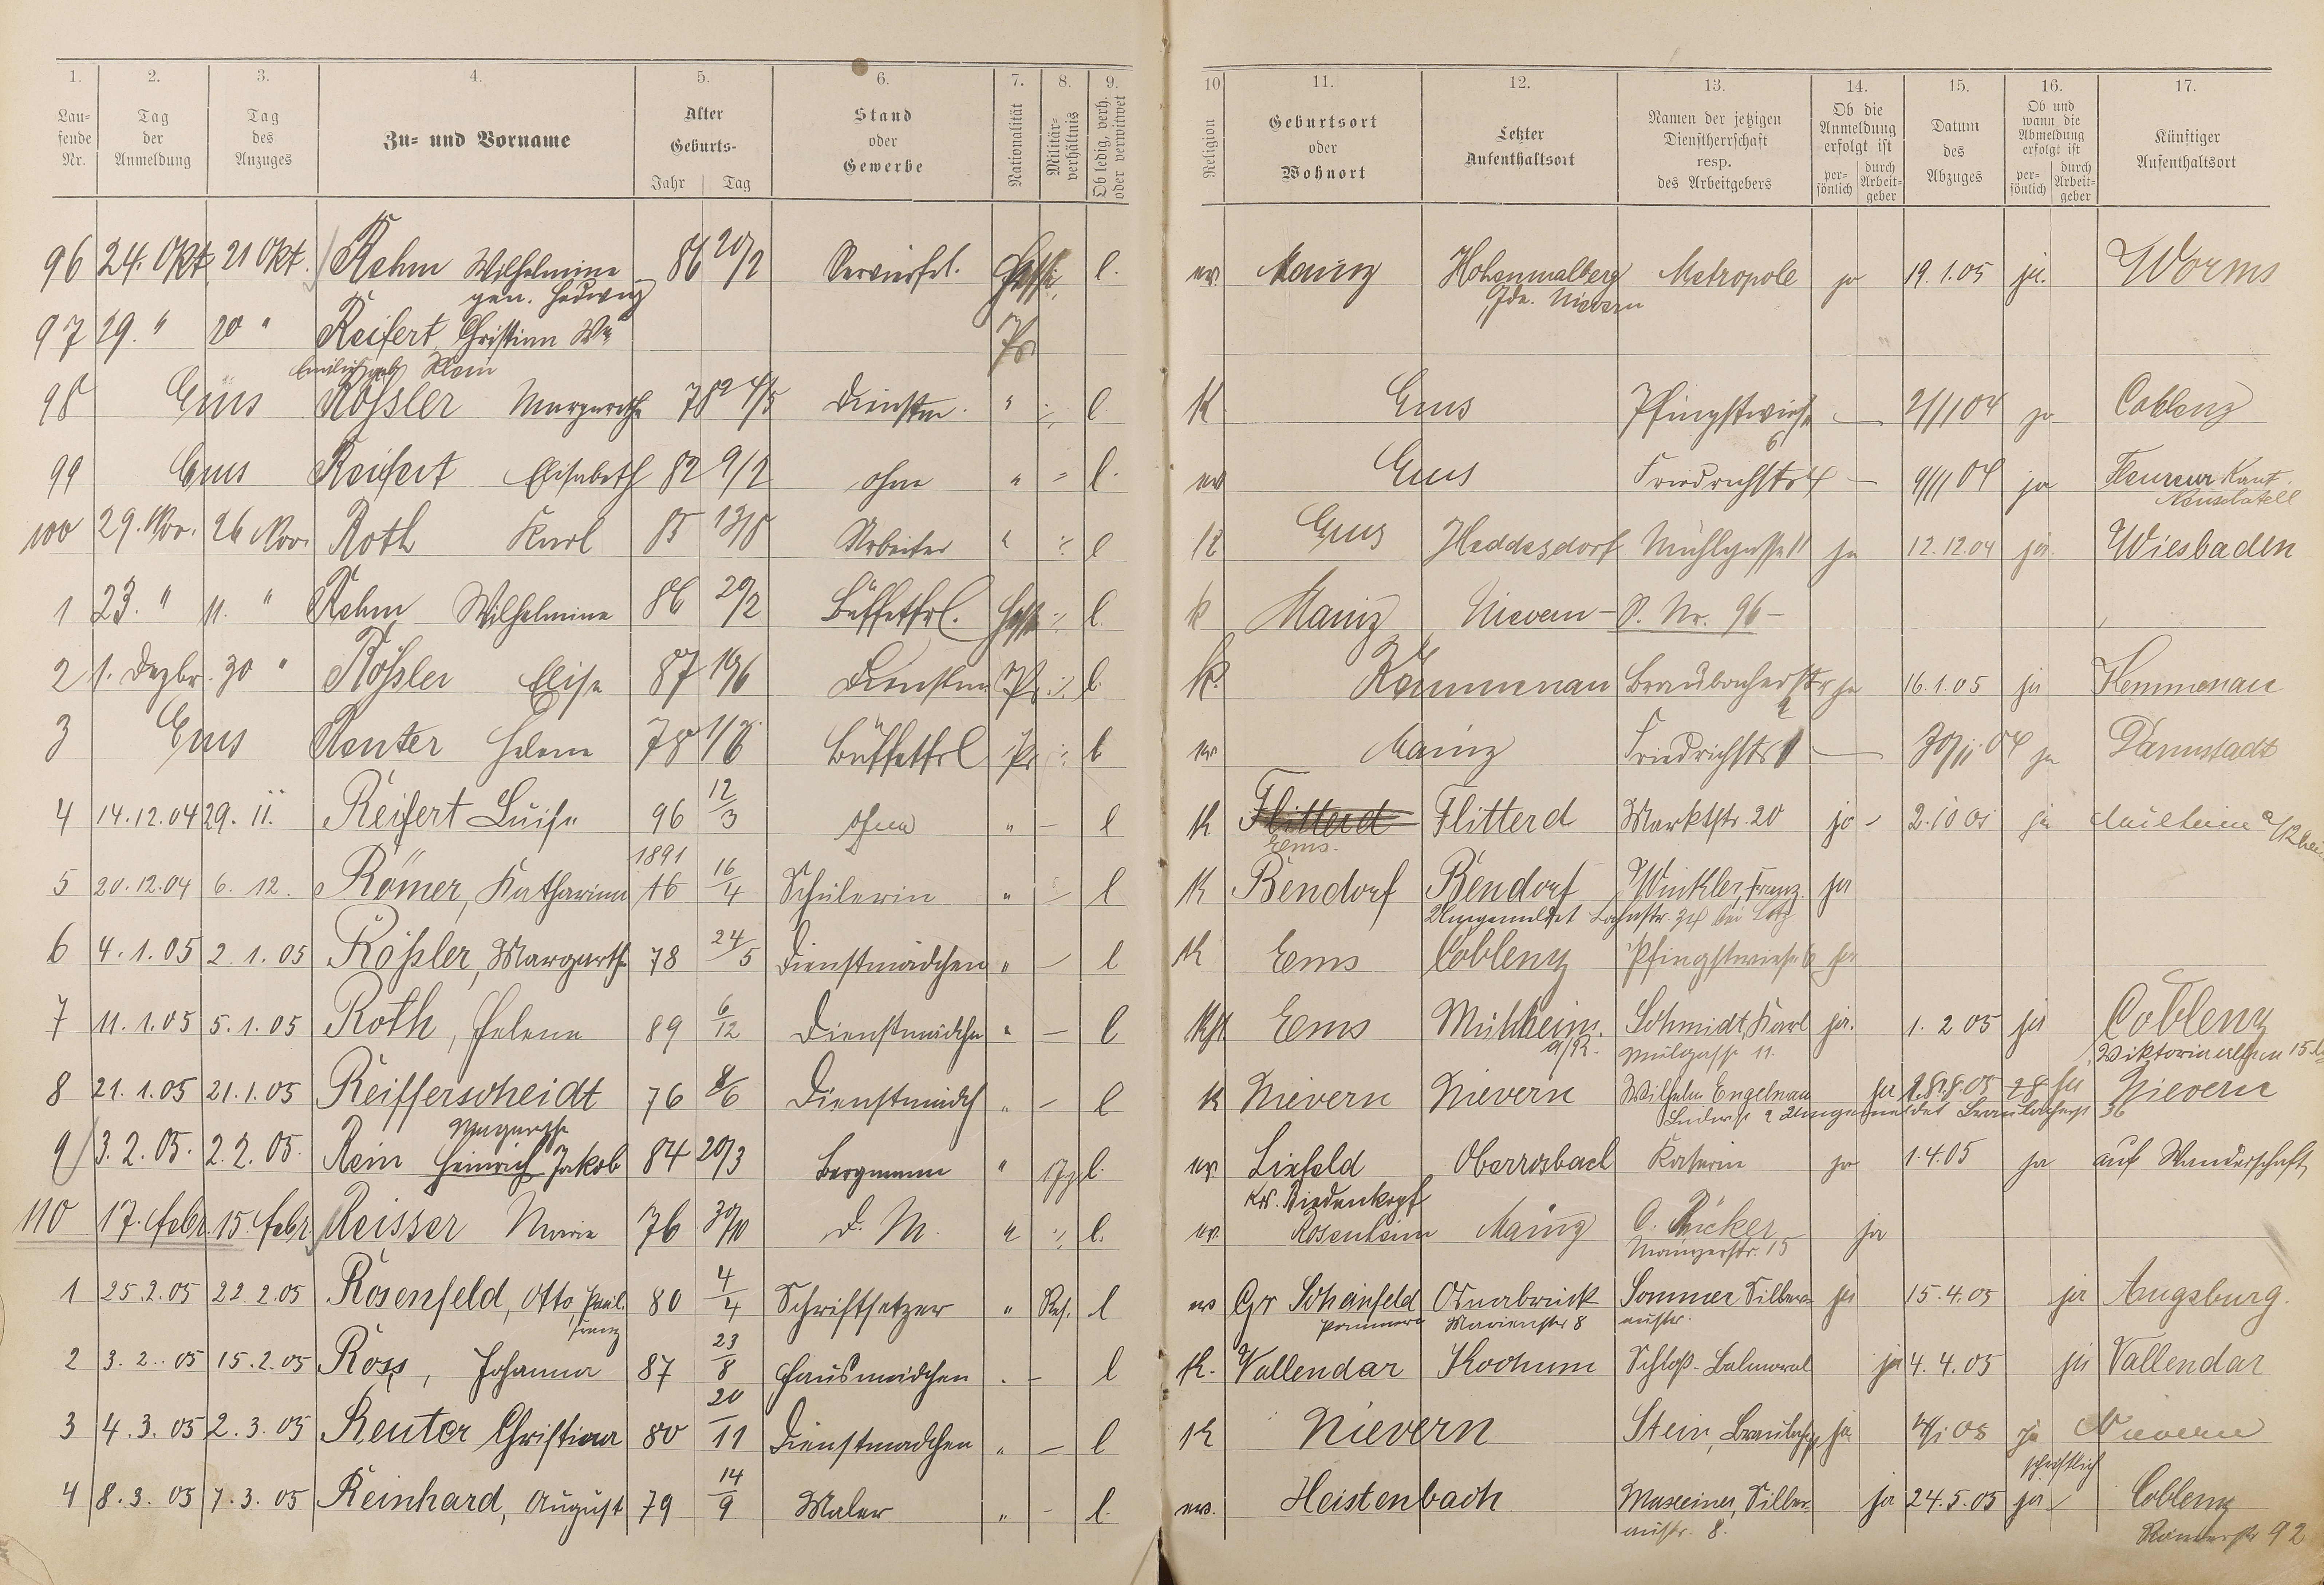 1. 2. 3. 4. 5. 6. 7. 8. 9. 10 11. 12. 13. 14. 15. 16. 17.
Laufende Nr. Tag der Anmeldung Tag des Anzuges Zu- und Vorname Alter Geburts- Jahr Tag Stand oder Gewerbe Nationalität Militärverhältnis Ob ledig, verh. oder verwitwet Religion Geburtsort oder Wohnort Letzter Aufenthaltsort Namen der jetzigen Dienstherrschaft resp. des Arbeitgebers Ob die Anmeldung erfolgt ist persönlich durch Arbeitgeber Datum des Abzuges Ob und wann die Abmeldung erfolgt ist persönlich durch Arbeitgeber Künftiger Aufenthaltsort
96 24. Okt. 21 Okt. Rehm Wilhelmine 86 20/2 Servierfrl. l. ev. Mainz Hohenmalberg Metropole ja 19.1.05 ja. Worms
gen. Hedwig Gde. Nievern
97 29. " 20 " Reifert Christian Ww Pr
Emilie geb. Klein
98 Ems Rößler Margarethe 78 24/5 Dienstm. " l K. Ems Pfingstwiese — 2/11 04 ja Coblenz
6
99 Ems Reifert Elisabeth 82 9/2 ohne " l. ev Ems Friedrichstr 4 — 9/11 04 ja Fleureur Kant.
Neuschatell
100 29. Nov. 26 Nov. Roth Karl 85 13/8 Arbeiter " l K Ems Heddesdorf Mühlgasse 11 ja 12.12.04 ja. Wiesbaden
1 23. " 11. " Rehm Wilhelmine 86 20/2 Büffetfrl. l. k Mainz Nievern – S. Nr. 96 –
2 1. Dezbr. 30 " Rößler Elise 87 19/6 Dienstm Pr l. K. Kemmenau Braubacherstr ja 16.1.05 ja Kemmenau
3 Ems Reuter Helene 78 1/8 Büffetfrl Pr l ev Mainz Friedrichstr — 30/11 04 ja Darmstadt
4 14.12.04 29. 11. Reifert Luise 96 12/3 ohne " — l K Flitterd Flitterd Marktstr. 20 ja ja Mülheim a/Rhein
Ems.
1891
5 20.12.04 6. 12. Römer, Katharina 16 16/4 Schülerin " — l K Bendorf Bendorf Winkler, Franz. ja
Umgemeldet Lahnstr. 34 bei Lotz
6 4.1.05 2.1.05 Rößler, Margarethe 78 24/5 Dienstmädchen " — l K Ems Coblenz Pfingstwiese 6 ja
7 11.1.05 5.1.05 Roth, Helene 89 6/12 Dienstmädchen " — l Kth Ems Mühlheim Schmidt, Karl ja. 1. 2 05 ja Coblenz
a/R. Mülgasse 11.
8 21.1.05 21.1.05 Reifferscheidt 76 8/6 Dienstmädch " — l K Nievern Nievern Wilhelm Engelmann ja 28.8.05 28 ja Nievern
Margarethe Umgemeldet 36
9 3.2.05. 2.2.05. Rein Heinrich Jakob 84 20/3 Bergmann " l. ev. Lixfeld Oberrosbach ja 1.4.05 ja auf Wanderschaft
Kr. Biedenkopf
110 17. Febr. 15. Febr. Reisser Marie 76 30/10 D. M. " l. ev. Rosenheim Mainz O. Rücker ja
Mainzerstr. 15
1 25.2.05 22 2.05 Rosenfeld, Otto, Paul. 80 4/4 Schriftsetzer " Res. l ev Gr Schönfeld Osnabrück Sommer Silber- ja 15.4.05 ja Augsburg.
Franz Pommern Marienstr 8 austr.
2 3. 2.. 05 15.2.05 Ross, Johanna 87 23/8 Hausmädchen . – l K. Vallendar Kochum Schloß-Balmoral ja 4.4.05 ja Vallendar
3 4.3.05 2.3.05 Reuter Christina 80 20/11 Dienstmädchen " — l K Nievern Stein, ja ja Nievern
schriftlich
4 8.3.05 7.3.05 Reinhard, August 79 14/9 Maler " – l. ev. Heistenbach Silber- ja 24.5.05 ja Coblenz
austr. 8. 92